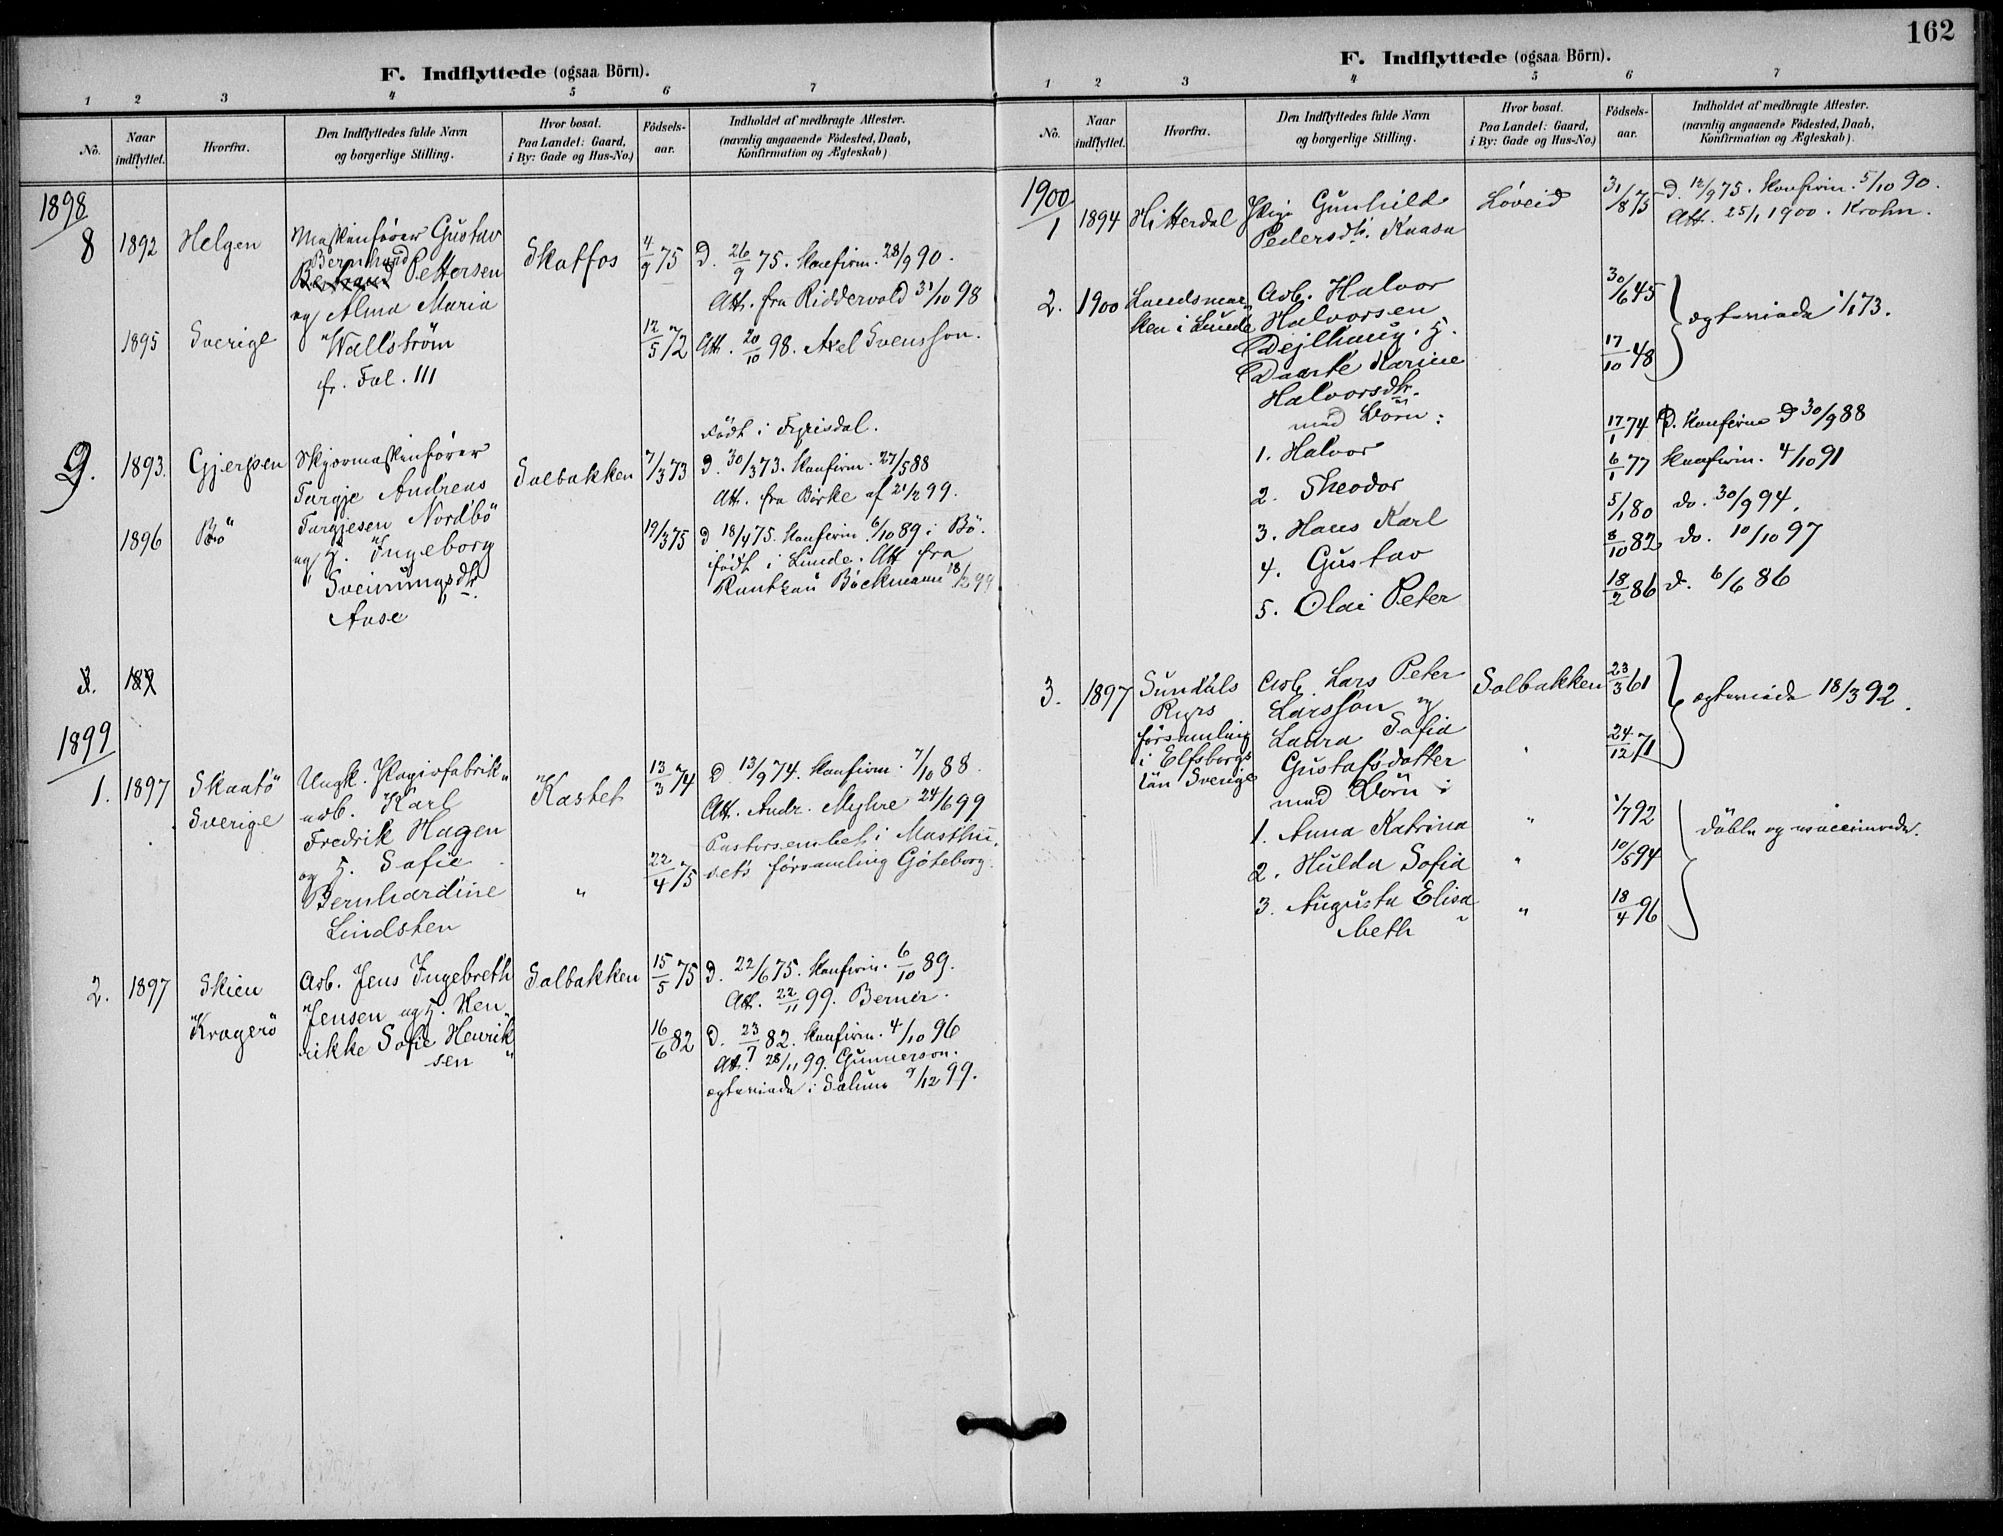 162
F. Indflyttede (ogsaa Börn).
1 2 3 4 5 6 7
No. Naar indflyttet. Hvorfra. Den Indflyttedes fulde Navn og borgerlige Stilling. Hvor bosat. Paa Landet: Gaard, i By: Gade og Hus-No.) Födsels-aar. Indholdet af medbragte Attester. (navnlig angaaende Födested, Daab, Konfirmation og Ægteskab)
1898
8 1892 Helgen Maskinfører Gustav
Bernhard
Pettersen Skotfos 4/9 75 D. 26/9 75. Konfirm. 28/9 90.
og Alma Maria Att. fra Riddervold 31/10 98
1895 Sverige Wallström 12/5 72 Att. 20/10 98. Axel Svensson.
fr. Fol. 111
Födt i Fyrisdal.
9. 1893. Gjerpen Skjærmaskinfører Solbakken 7/3 73 D. 30/3 73. Konfirm. 27/5 88
Targje Andreas Att. fra Börke af 21/2 99.
Targjesen Nordbö
1896 Bö og H. Ingeborg 19/3 75 D 18/4 75. Konfirm. 6/10 89 i Bö.
Sveinungsdtr. født i Lunde. Att fra
Aase Rantzau Böckmann 18/2 99
3. 189
1899
1. 1897 Skaatö Ungk. Papirfabrik Kastet 13/3 74 D. 13/9 74. Konfirm. 7/10 88.
Sverige arb. Karl Att. Andr. Myhre 24/6 99
Fredrik Hagen Pastorsembet i Masthu
og H. Sofie 22/4 75 sets församling Göteborg.
Bernhardine "
Lindsten
2. 1897 Skien Arb. Jens Ingebreth Solbakken 15/5 75 D. 22/6 75. Konfirm. 6/10 89.
Jensen og H. Hen Att. 22/11 99. Berner.
Kragerö rikke Sofie Henrik 16/6 82 D. 23/7 82. Konfirm. 4/10 96
sen Att. 28/11 99. Gunnerson.
ægteviede i Solum 9/12 99.
F. Indflyttede (ogsaa Börn).
1 2 3 4 5 6 7
No. Naar indflyttet. Hvorfra. Den Indflyttedes fulde Navn og borgerlige Stilling. Hvor bosat. Paa Landet: Gaard, i By: Gade og Hus-No.) Födsels-aar. Indholdet af medbragte Attester. (navnlig angaaende Födested, Daab, Konfirmation og Ægteskab)
1900
1 1894 Hitterdal Pige Gunhild Löveid 31/8 75 D. 12/9 75. Konfirm. 5/10 90.
Pedersdtr. Kaasa Att. 25/1 1900. Krohn.
2. 1900 Landsmar Arb. Halvor 30/6 45 ægteviede 1/1 73.
ken i Lunde Halvorsen
Dejlhaug. H.
Daarte Karine 17/10 48
Halvorsdtr.
med Börn:
1. Halvor 17/1 74 D. Konfirm D 30/9 88
2. Theodor 6/1 77 Konfirm. 4/10 91
3. Hans Karl 5/1 80 do. 30/9 94.
4. Gustav 8/10 82 do. 10/10 97
5. Olai Peter 18/2 86 d. 6/6 86
3. 1897 Sundals Arb. Lars Peter Solbakken 23/3 61 ægteviede 18/3 92.
Ryrs Larsson og
församling Laura Sofia " 24/12 71
i Elfsborgs Gustafsdotter
län Sverige med Börn:
1. Anna Katrina " 1/7 92 döbte og vaccinerede.
2. Hulda Sofia " 10/5 94
3. Augusta Elisa " 18/4 96
beth